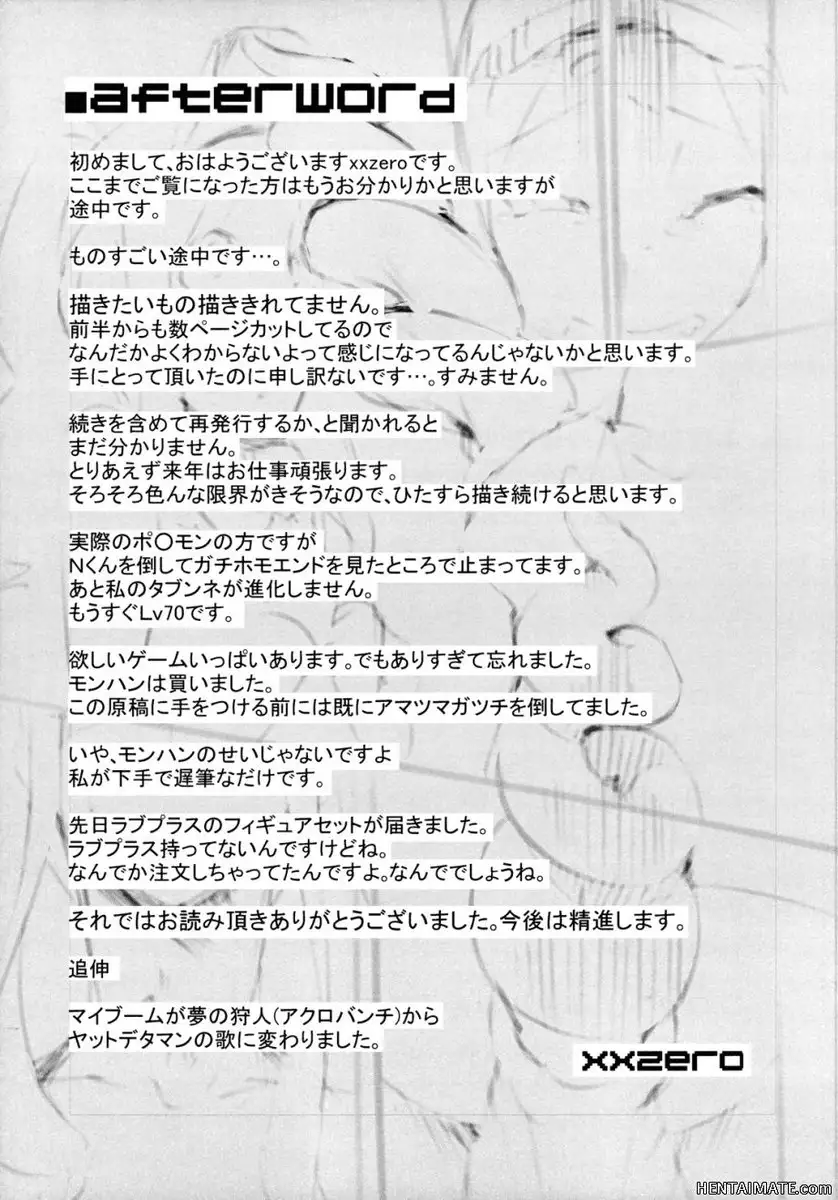 ■afterword
初めまして、おはようございますxxzeroです。
ここまでご覧になった方はもうお分かりかと思いますが
途中です。
ものすごい途中です…。
描きたいもの描ききれてません。
前半からも数ページカットしてるので
なんだかよくわからないよって感じになってるんじゃないかと思います。
手にとって頂いたのに申し訳ないです…。すみません。
続きを含めて再発行するか、と聞かれると
まだ分かりません。
とりあえず来年はお仕事頑張ります。
そろそろ色んな限界がきそうなので、ひたすら描き続けると思います。
実際のポ〇モンの方ですが
Nくんを倒してガチホモエンドを見たところで止まってます。
あと私のタブンネが進化しません。
もうすぐLv70です。
欲しいゲームいっぱいあります。でもありすぎて忘れました。
モンハンは買いました。
この原稿に手をつける前には既にアマツマガツチを倒してました。
いや、モンハンのせいじゃないですよ
私が下手で遅筆なだけです。
先日ラブプラスのフィギュアセットが届きました。
ラブプラス持ってないんですけどね。
なんでか注文しちゃってたんですよ。なんででしょうね。
それではお読み頂きありがとうございました。今後は精進します。
追伸
マイブームが夢の狩人(アクロバンチ)から
ヤットデタマンの歌に変わりました。
xxzero
HENTAIMATE.com